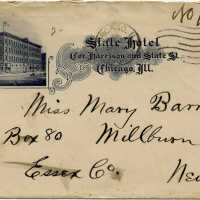 State Hotel
Cor Harrison and State St
Chicago, Ill.
Miss Mary Barr
Box 80 Millburn
Essex Co. Ne